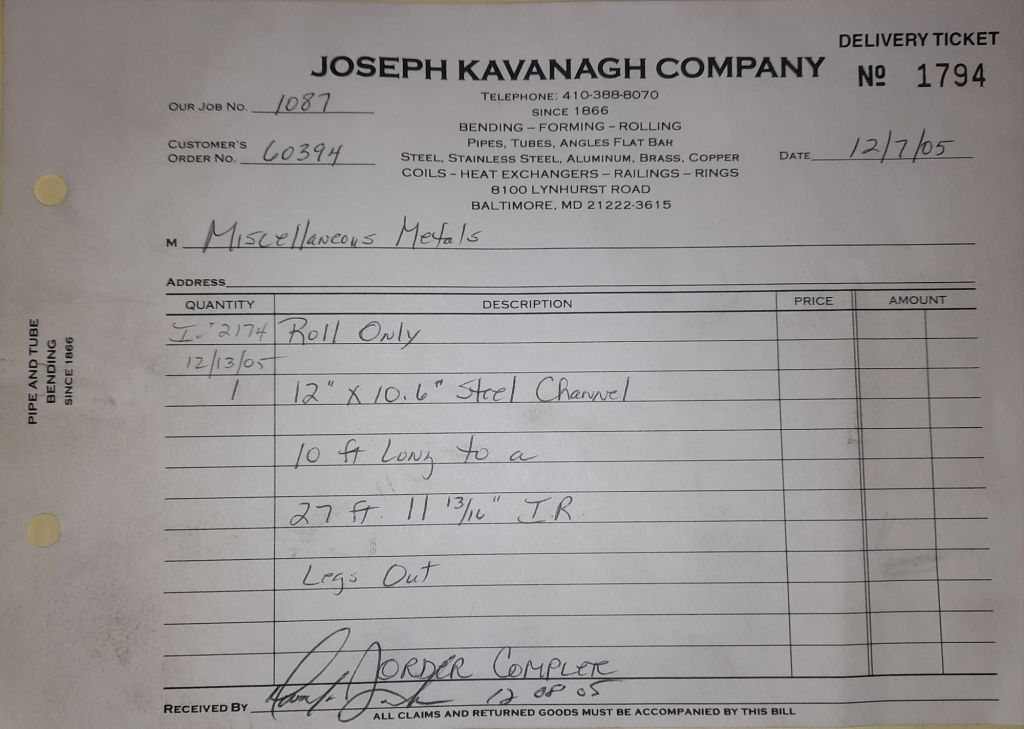 DELIVERY TICKET
JOSEPH KAVANAGH COMPANY
Nº 1794
OUR JOB NO. 1087
TELEPHONE: 410-388-8070
SINCE 1866
BENDING – FORMING – ROLLING
CUSTOMER'S
ORDER NO. 60394
PIPES, TUBES, ANGLES FLAT BAR
STEEL, STAINLESS STEEL, ALUMINUM, BRASS, COPPER
DATE 12/7/05
COILS – HEAT EXCHANGERS – RAILINGS – RINGS
8100 LYNHURST ROAD
BALTIMORE, MD 21222-3615
M Miscellaneous Metals
ADDRESS
QUANTITY DESCRIPTION PRICE AMOUNT
2174 Roll Only
12/13/05
1 12" X 10.6" Steel Channel
10 ft Long to a
27 ft. 11 13/16" I.R.
Legs Out
ORDER COMPLETE
12 08 05
RECEIVED BY
ALL CLAIMS AND RETURNED GOODS MUST BE ACCOMPANIED BY THIS BILL
PIPE AND TUBE
BENDING
SINCE 1866